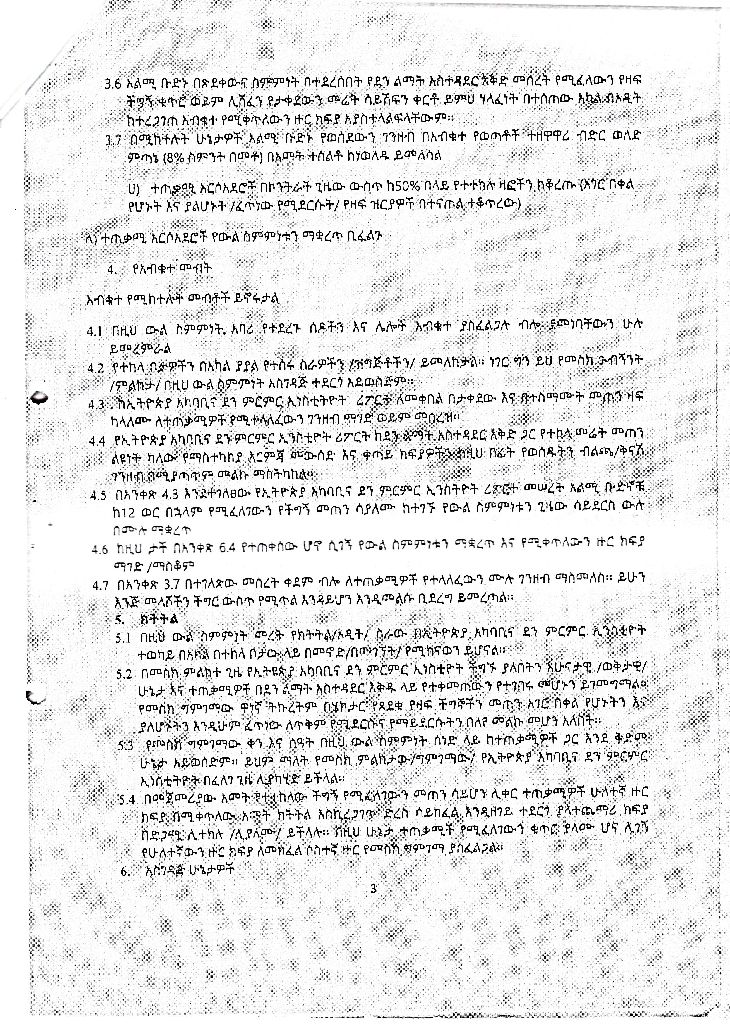 3.6 አልሚ ቡድኑ በጽደቀውና ስምምነት በተደረሰበት የደን ልማት አስተዳደር እቅድ መሰረት የሚፈለገውን የዛፍ
ችግኝ ቁጥር ወይም ሊሸፈን የታቀደውን መሬት ሳይሸፍን ቀርቶ ይምህ ሃላፊነት በተሰጠው አካል በኦዲት
ከተረጋገጠ አብቁተ የሚቀጥለውን ዙር ክፍያ አያስተላልፍላቸውም።
3.7 በሚከተሉት ሁኔታዎች አልሚ ቡድኑ የወሰደውን ገንዘብ በአብቁተ የወጣቶች ተዘዋዋሪ ብድር ወለድ
ምጣኔ (8% ስምንት በመቶ) በአመት ተሰልቶ ከነወለዱ ይመለሳል
ሀ) ተጠቃሚ አርሶአደሮች በኮንትራት ጊዜው ውስጥ ከ50% በላይ የተተከሉ ዛፎችን ከቆረጡ (አገር በቀል
የሆኑት እና ያልሆኑት /ፈጥነው የሚደርሱት/ የዛፍ ዝርያዎች በተናጠል ተቆጥረው)
ለ) ተጠቃሚ አርሶአደሮች የውል ስምምነቱን ማቋረጥ ቢፈልጉ
4. የአብቁተ መብት
አብቁተ የሚከተሉት መብቶች ይኖሩታል
4.1 በዚህ ውል ስምምነት አባሪ የተደረጉ ሰዶችን እና ሌሎች አብቁተ ያስፈልጋሉ ብሎ ያመነባቸውን ሁሉ
ይመረምራል
4.2 የተከላ ቦታዎችን በአካል ያያል የተሰሩ ስራዎችን /ዝግጅቶችን/ ይመለከታል። ነገር ግን ይህ የመስክ ጉብኝንት
/ምልከታ/ በዚህ ውል ስምምነት አስገዳጅ ተደርጎ አይወሰድም።
4.3 ከኢትዮጵያ አካባቢና ደን ምርምር ኢንስቲትዮት ሪፖርት ለመቀበል በታቀደው እና በተስማሙት መጠን ዛፍ
ካላለሙ ለተጠቃሚዎች የሚተላለፈውን ገንዘብ ማገድ ወይም መሰረዝ።
4.4 የኢትዮጵያ አካባቢና ደን ምርምር ኢንስቲዮት ሪፖርት ከደን ልማት አስተዳደር እቅድ ጋር የተከላ መሬት መጠን
ልዩነት ካለው የማስተካከያ እርምጃ መውሰድ እና ቀጣይ ክፍያዎችን ከዚህ በፊት የወሰዱትን ብልጫ/ቅናሽ
ገንዘብ በሚያጣጥም መልኩ ማስትካከል።
4.5 በአንቀጽ 4.3 እንደተገለፀው የኢትዮጵያ አካባቢና ደን ምርምር ኢንስቲዮት ሪፖርት መሠረት አልሚ ቡድኖቹ
ከ12 ወር በኋላም የሚፈለገውን የችግኝ መጠን ሳያለሙ ከተገኙ የውል ስምምነቱን ጊዜው ሳይደርስ ውሉ
በሙሉ ማቋረጥ
4.6 ከዚህ ታች በአንቀጽ 6.4 የተጠቀሰው ሆኖ ሲገኝ የውል ስምምነቱን ማቋረጥ እና የሚቀጥለውን ዙር ክፍያ
ማገድ /ማስቆም
4.7 በአንቀጽ 3.7 በተገለጽው መሰረት ቀደም ብሎ ለተጠቃሚዎች የተላለፈውን ሙሉ ገንዘብ ማስመለስ። ይሁን
እንጅ መላሾችን ችግር ውስጥ የሚጥል እንዳይሆን እንዲመልሱ ቢደረግ ይመረጣል።
5. ክትትል
5.1 በዚህ ውል ስምምነት መሬት የክትትል/ኦዲት/ ስራው በኢትዮጵያ አካባቢና ደን ምርምር ኢንስቲዮት
ተወካይ በአካል በተከላ ቦታው ላይ በመኖድ/በመገኘት/ የሚከናወን ይሆናል።
5.2 በመስክ ምልከታ ጊዜ የኢትዩጵያ አካባቢና ደን ምርምር ኢንስቲዮት ችግኙ ያለበትን አሁናታዊ /ወቅታዊ/
ሁኔታ እና ተጠቃሚዎች በደን ልማት አስተዳደር እቅዱ ላይ የተቀመጠውን የተገበሩ መሆኑን ይገመግማል።
የመስክ ግምገማው ዋነኛ ትኩረትም በሄክታር የጸደቁ የዛፍ ችግኞችን መጠን አገር በቀል የሆኑትን እና
ያልሆኑትን እንዲሁም ፈጥነው ለጥቅም የሚደርሱና የማይደርሱትን በለየ መልኩ መሆን አለበት።
5.3 የመስክ ግምገማው ቀን እና ሰዓት በዚህ ውል ስምምነት ሰነድ ላይ ከተጠቃሚዎች ጋር እንደ ቅድመ
ሁኔታ አይወሰድም። ይህም ማለት የመስክ ምልከታው/ግምገማው/ የኢትዮጵያ አካባቢና ደን ምርምር
ኢንስቲትዮት በፈለገ ጊዜ ሊያካሂድ ይችላል።
5.4 በመጀመሪያው አመት የተተከለው ችግኝ የሚፈለገውን መጠን ሳይሆን ሊቀር ተጠቃሚዎች ሁለተኛ ዙር
ክፍያ በሚቀጥለው አመት ክትትል እስኪረጋገጥ ድረስ ሳይከፈል እንዲዘገይ ተደርጎ ያለተጨማሪ ክፍያ
በድጋሚ ሊተክሉ /ሊያለሙ/ ይችላሉ። በዚህ ሁኔታ ተጠቃሚች የሚፈለገውን ቁጥር ያለሙ ሆኖ ሊገኝ
የሁለተኛውን ዙር ክፍያ ለመክፈል ሶስተኛ ዙር የመስክ ግምገማ ያስፈልጋል።
6. አስገዳጅ ሁኔታዎች
3